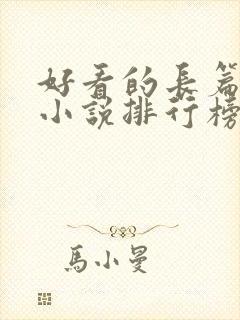 好看的長篇
小說排行榜
馬小曼